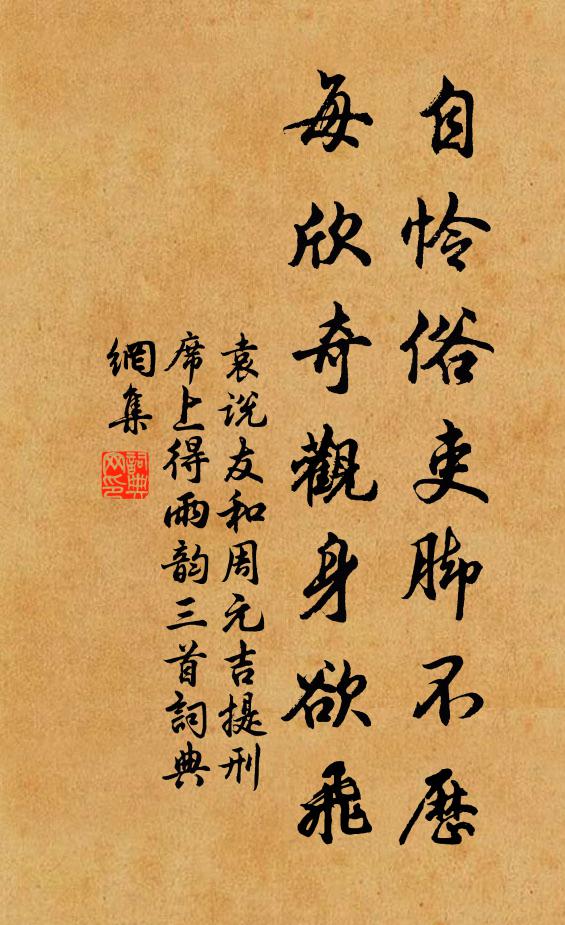 自怜俗吏脚不歷
每欣奇觀身欲飛
袁说友和周元吉提刑
席上得雨韵三首詞典
網集
詞典
网印